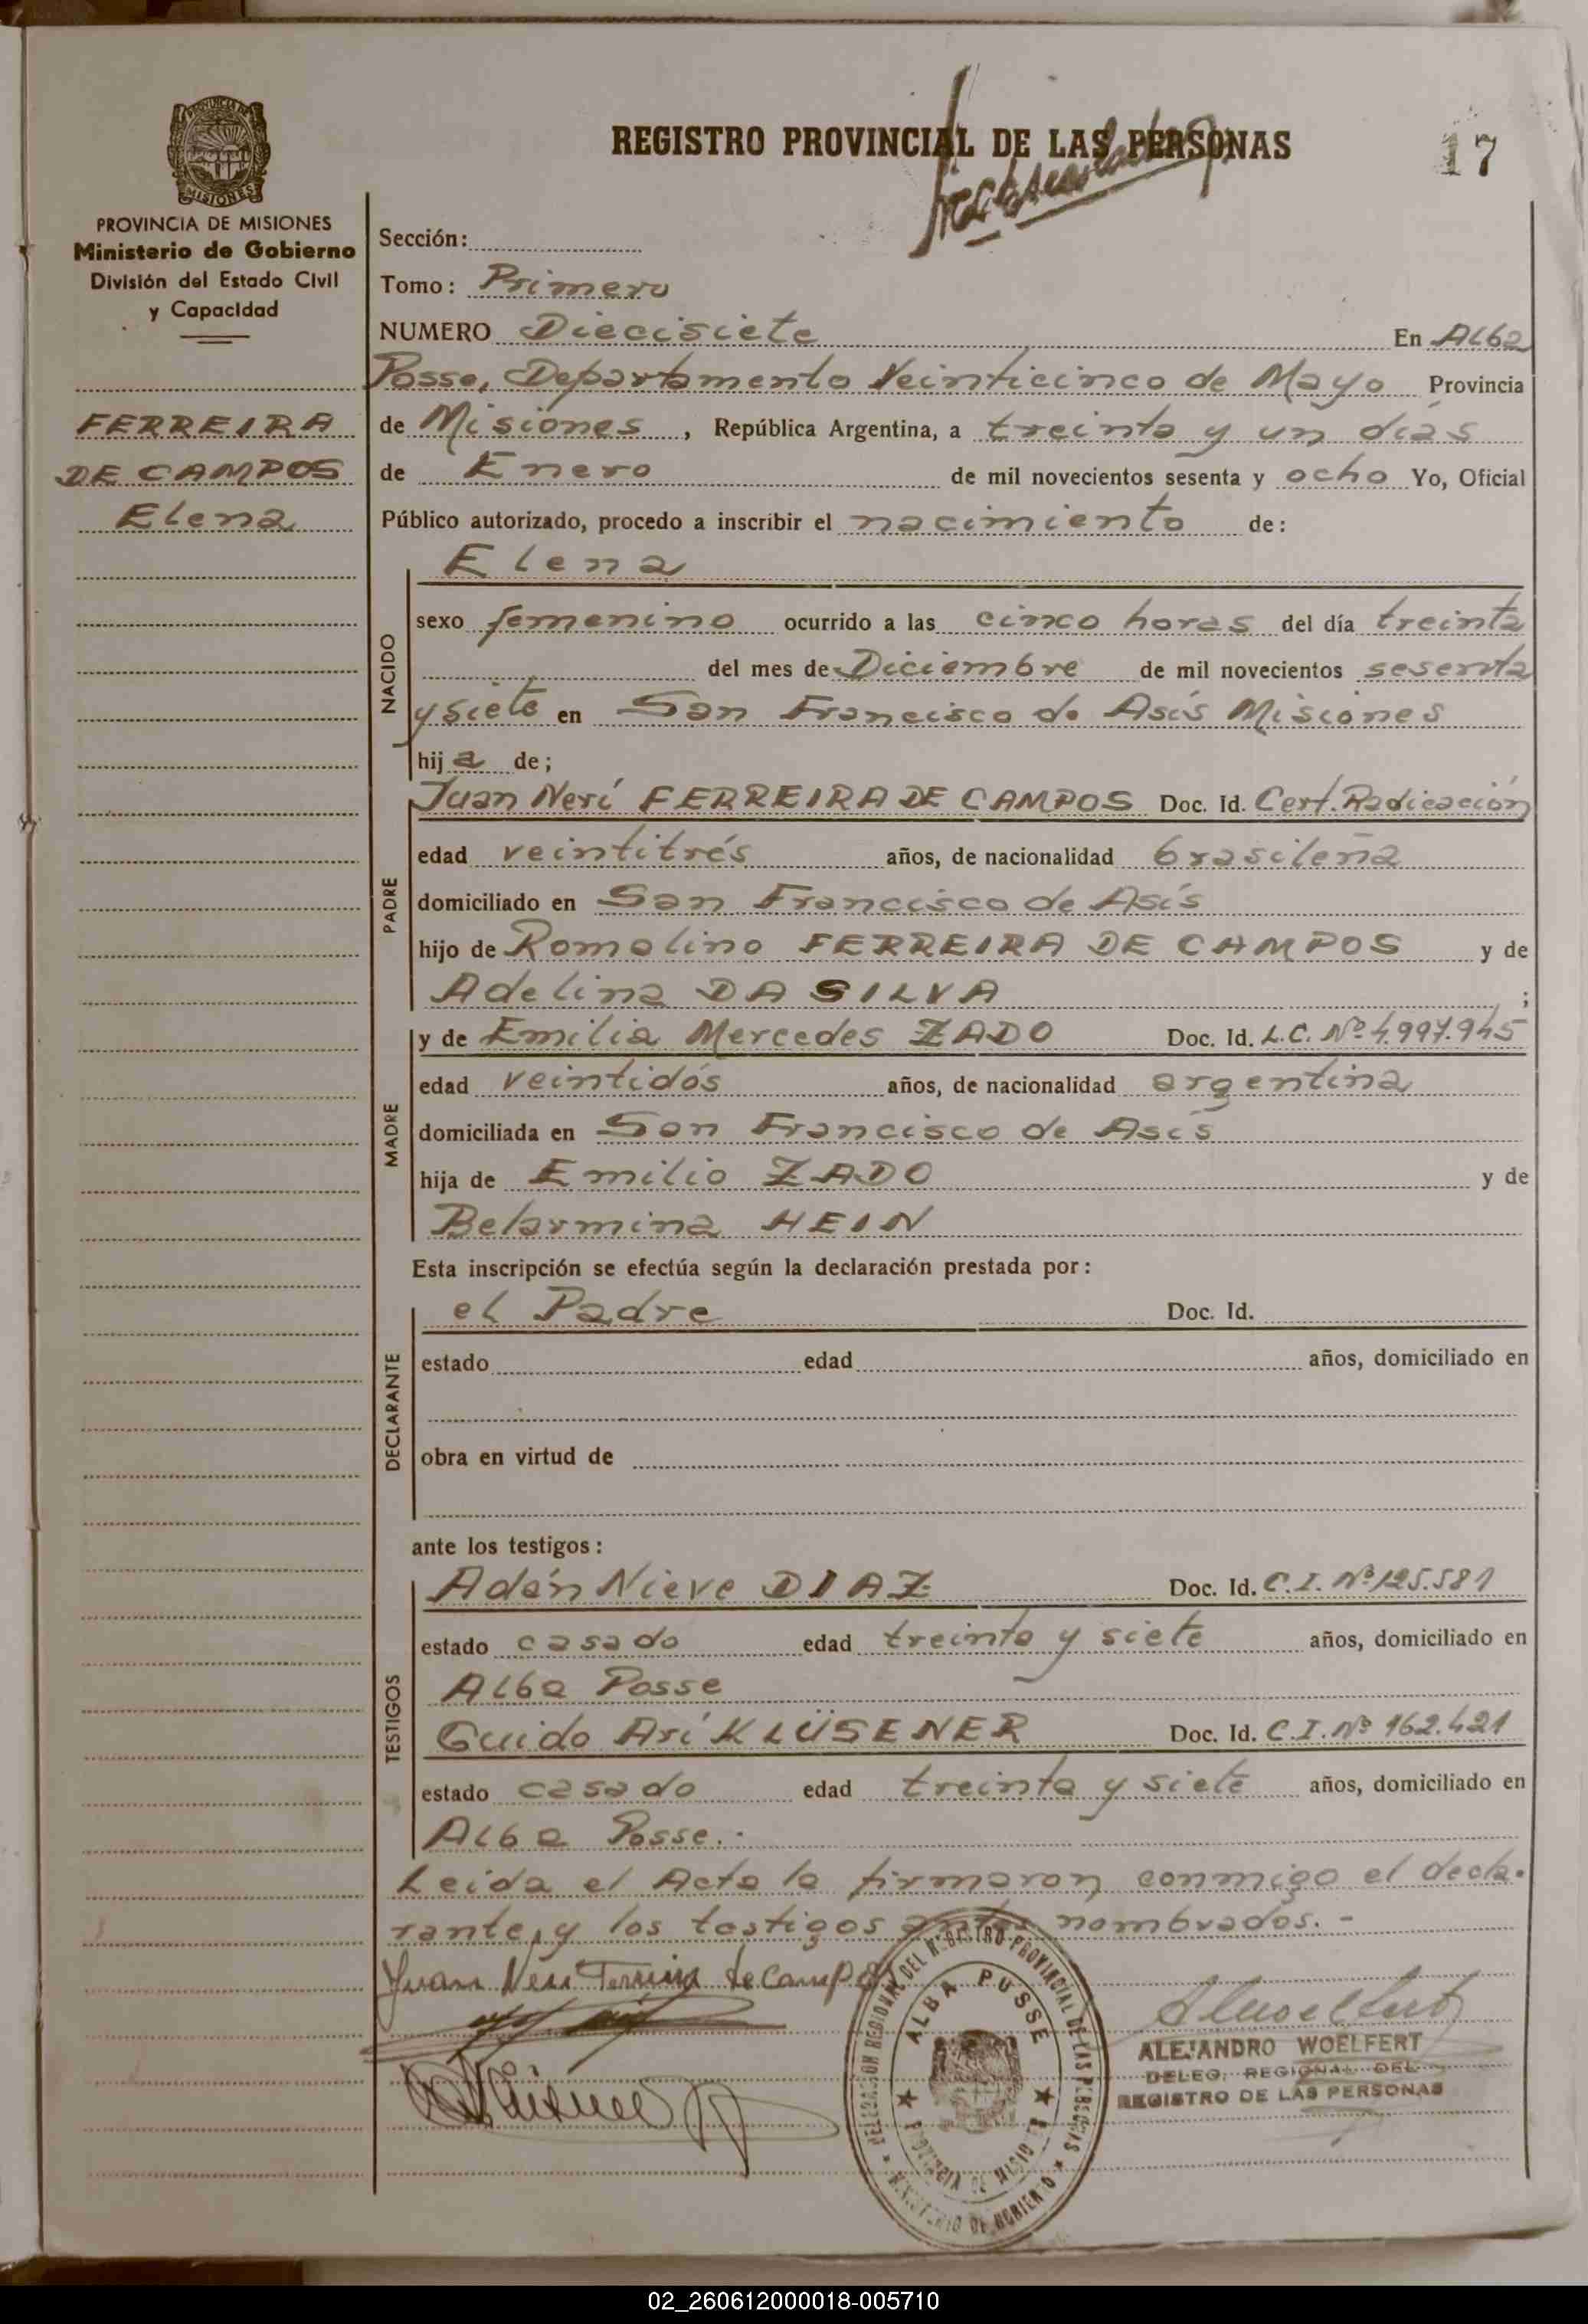 REGISTRO PROVINCIAL DE LAS PERSONAS
17
PROVINCIA DE MISIONES
Ministerio de Gobierno
División del Estado Civil
y Capacidad
FERREIRA
DE CAMPOS
Elena
Sección:
Tomo: Primero
NUMERO Diecisiete En Alba
Posse, Departamento Veinticinco de Mayo Provincia
de Misiones, República Argentina, a treinta y un días
de Enero de mil novecientos sesenta y ocho Yo, Oficial
Público autorizado, procedo a inscribir el nacimiento de:
NACIDO
Elena
sexo femenino ocurrido a las cinco horas del día treinta
del mes de Diciembre de mil novecientos sesenta
y siete en San Francisco de Asís Misiones
hija de;
PADRE
Juan Neri FERREIRA DE CAMPOS Doc. Id. Cert. Radicación
edad veintitrés años, de nacionalidad brasileña
domiciliado en San Francisco de Asís
hijo de Romalino FERREIRA DE CAMPOS y de
Adelina DA SILVA ;
MADRE
y de Emilia Mercedes ZADO Doc. Id. L.C. Nº 4.997.945
edad veintidós años, de nacionalidad argentina
domiciliada en San Francisco de Asís
hija de Emilio ZADO y de
Belarmina HEIN
Esta inscripción se efectúa según la declaración prestada por:
DECLARANTE
el Padre Doc. Id.
estado edad años, domiciliado en
obra en virtud de
ante los testigos:
TESTIGOS
Adán Nieve DIAZ Doc. Id. C.I. Nº 125.581
estado casado edad treinta y siete años, domiciliado en
Alba Posse
Guido Arí KLÜSENER Doc. Id. C.I. Nº 162.421
estado casado edad treinta y siete años, domiciliado en
Alba Posse.-
Leida el Acta la firmaron conmigo el decla-
rante, y los testigos antes nombrados.-
Juan Neri Ferreira de Campos
DELEGACION REGIONAL DEL REGISTRO PROVINCIAL DE LAS PERSONAS
MINISTERIO DE GOBIERNO
ALBA POSSE
PROVINCIA DE MISIONES
ALEJANDRO WOELFERT
DELEG. REGIONAL DEL
REGISTRO DE LAS PERSONAS
02_260612000018-005710